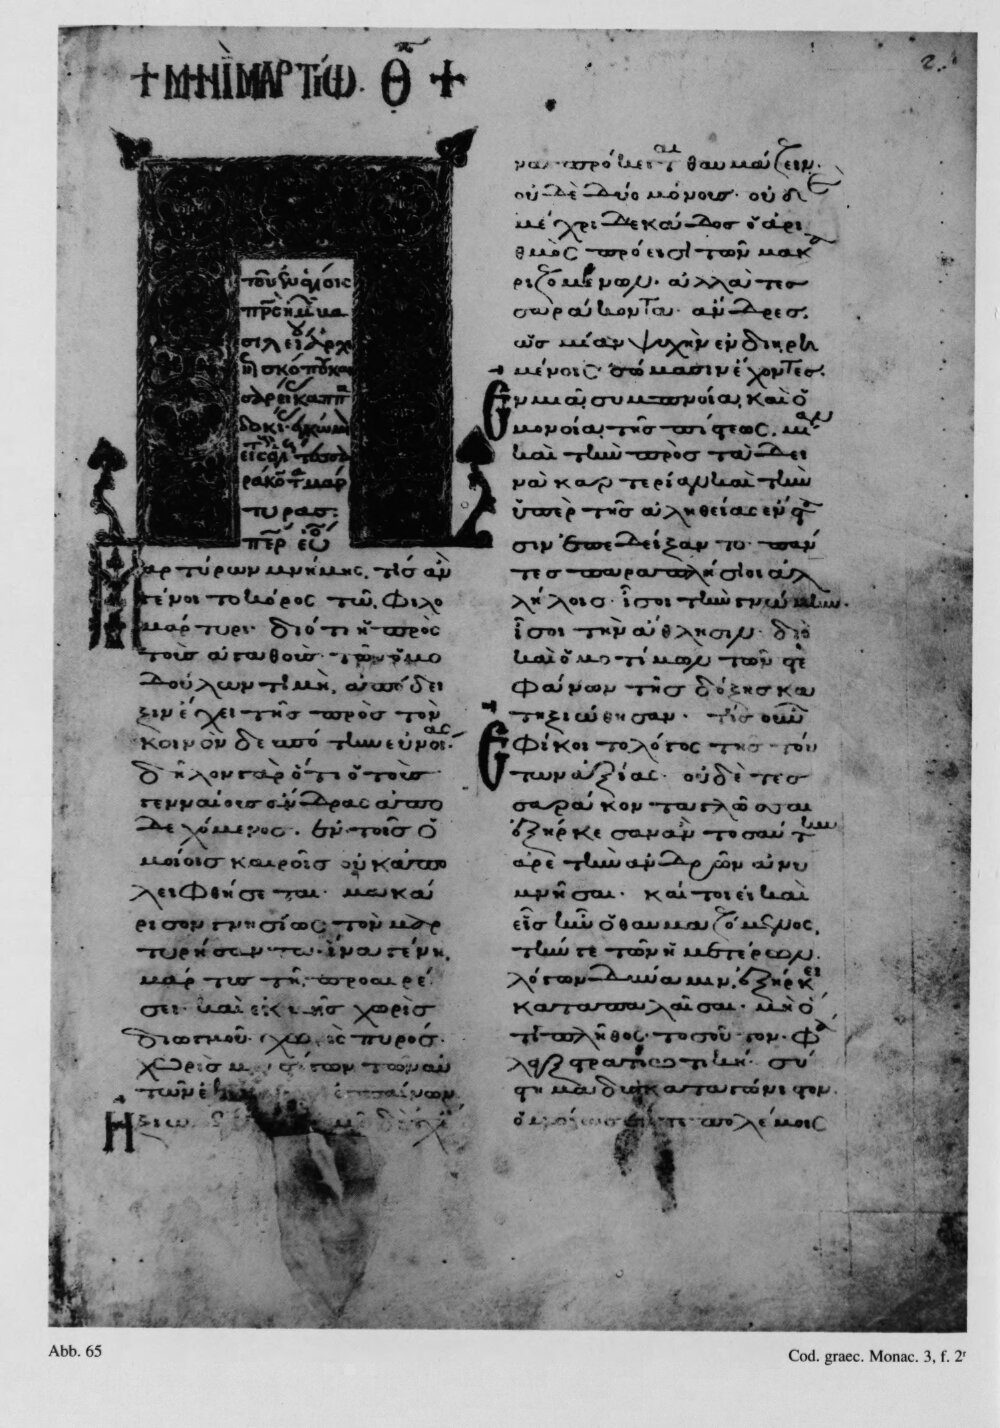 + ΜΗΝΙ ΜΑΡΤΙΩ. Θ +
2.
τοῦ ἐν ἁγίοις
πρς ἡμ
σιλείου ἀρχι
σκόπου και
σαρεί καππα
δοκι
εἰς τοὺς
ράκοτ μάρ
τυρας:
Μ
αρτύρων μνήμης, τίς ἂν
γένοι το κόρος τῶ φιλο
μάρτυρι· διότι ἡ πρὸς
τοὺς ἀγαθοὺς τῶν ὁμο
δούλων τιμὴ, ἀπόδει
ξιν ἔχει τῆς πρὸς τὸν
κοινὸν δεσπότην εὐνοίας·
δῆλον γὰρ ὅτι ὁ τοὺς
γενναίους ἄνδρας ἀπο
δεχόμενος. ἐν τοῖς ὁ
μοίοις καιροῖς οὐκ ἀπο
λειφθήσεται. μακά
ρισον γνησίως τὸν μαρ
τυρήσαντα· ἵνα γένῃ
μάρτυς τῆ προαιρέ
σει· καὶ ἐκβῆς χωρὶς
διωγμοῦ· χωρὶς πυρός·
χωρὶς μαστίγων τῶν αὐ
τῶν ἐκείνοις ἐπαίνων
Η
ναι πρόκειται θαυμάζειν·
οὐδὲ δύο μόνους· οὐδὲ
μέχρι δεκάδος ὁ ἀρι
θμὸς πρόεισι τῶν μακα
ριζομένων. ἀλλὰ τεσ
σαράκοντα ἄνδρες.
ὡς μίαν ψυχὴν ἐν διῃρη
μένοις σώμασιν ἔχοντες.
Ε
ν μιᾶ συμπνοία καὶ ὁ
μονοία τῆς πίστεως. μίαν
καὶ τὴν πρὸς τὰ δει
νὰ καρτερίαν καὶ τὴν
ὑπὲρ τῆς ἀληθείας ἔνστα
σιν ἐπεδείξαντο. πάν
τες παραπλήσιοι ἀλ
λήλοις· ἴσοι τὴν γνώμην·
ἴσοι τὴν ἄθλησιν· διὸ
καὶ ὁμοτίμων τῶν στε
φάνων τῆς δόξης κα
τηξιώθησαν. τίς οὖν
Ε
φίκοι το λόγος τῆς τού
των ἀξίας. οὐδὲ τεσ
σαράκοντα γλῶσσαι
ἐξήρκεσαν ἂν τοσούτων
ἀρετὴν ἀνδρῶν ἀνυ
μνῆσαι. καίτοι εἰ καὶ
εἷς ἦν ὁ θαυμαζόμενος,
τήν γε τῶν ἡμετέρων
λόγων δύναμιν ἐξήρκει
καταπαλαῖσαι. μὴ ὅ
τι πλῆθος τοσοῦτον. φά
λαγξ στρατιωτική. σύ
στημα δυσκαταγώνιστον.
ὁμοίως ἔν τε πολέμοις
Abb. 65
Cod. graec. Monac. 3, f. 2r